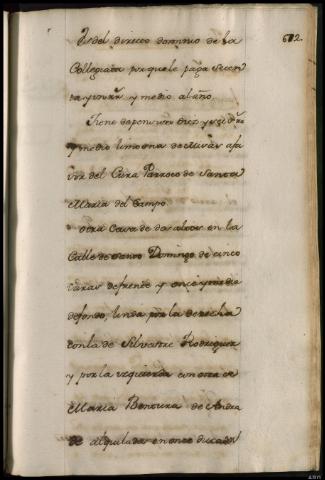 612.
es del directo dominio de la
Collegiata por que le paga secen
ta y un rs. y medio al año.
Tiene de pension diez y seis rs.
y medio limosna de Misas a fa
vor del Cura Parroco de Santa
Maria del Campo
Otra Casa de dos altos en la
Calle de Santo Domingo de cinco
varas de frente y once y media
de fondo, linda por la derecha
con la de Silvestre Rodriguez
y por la yzquierda con otra de
Maria Bentura de Andra
de alquilada en once ducados